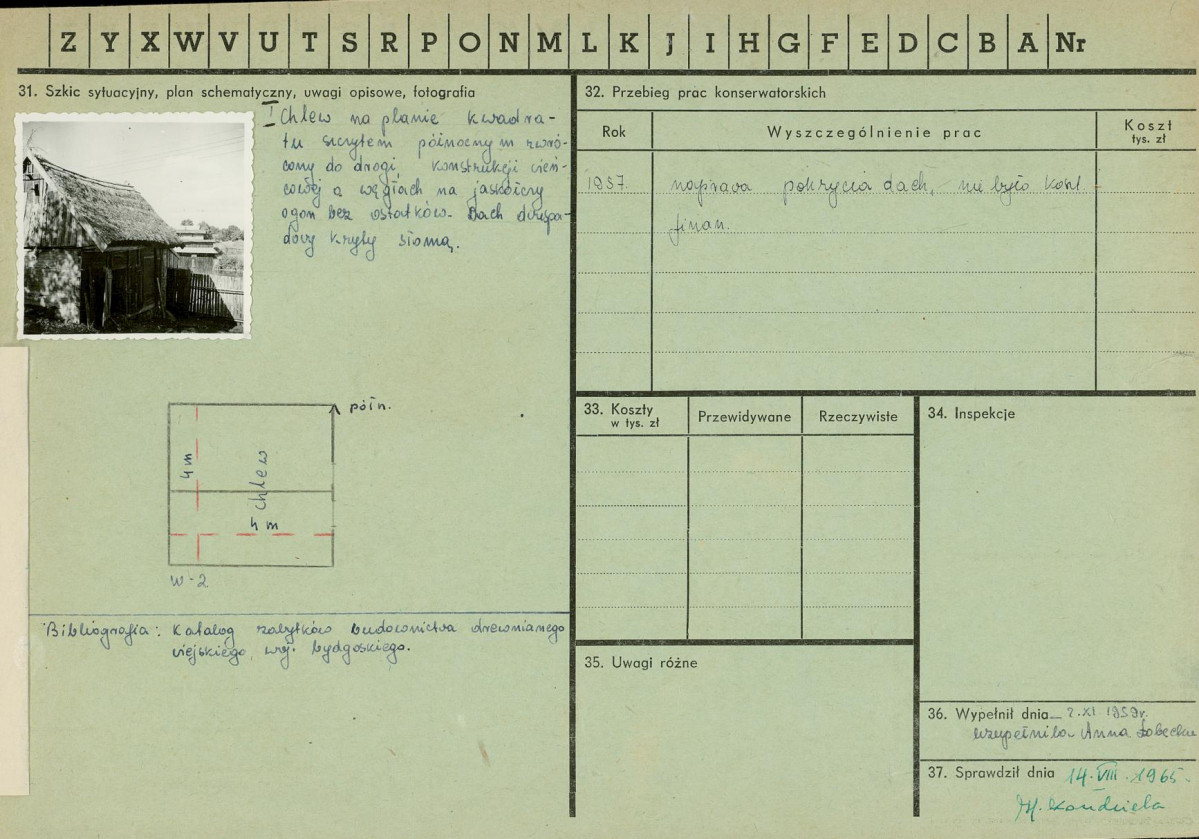 Z Y X W V U T S R P O N M L K J I H G F E D C B A Nr
31. Szkic sytuacyjny, plan schematyczny, uwagi opisowe, fotografia
I Chlew na planie kwadra-
tu szczytem północnym zwró-
cony do drogi, konstrukcji wień-
cowej o węgłach na jaskółczy
ogon bez ostatków. Dach dwuspa-
dowy kryty słomą.
półn.
4 m
chlew
4 m
W-2
Bibliografia: Katalog zabytków budownictwa drewnianego
wiejskiego woj. bydgoskiego.
32. Przebieg prac konserwatorskich
Rok
Wyszczególnienie prac
Koszt
tys. zł
1957. naprawa pokrycia dach, nie było
finan.
33. Koszty
w tys. zł
Przewidywane
Rzeczywiste
34. Inspekcje
35. Uwagi różne
36. Wypełnił dnia 2.XI 1959r.
uzupełniła Anna
37. Sprawdził dnia 14.VIII.1965.